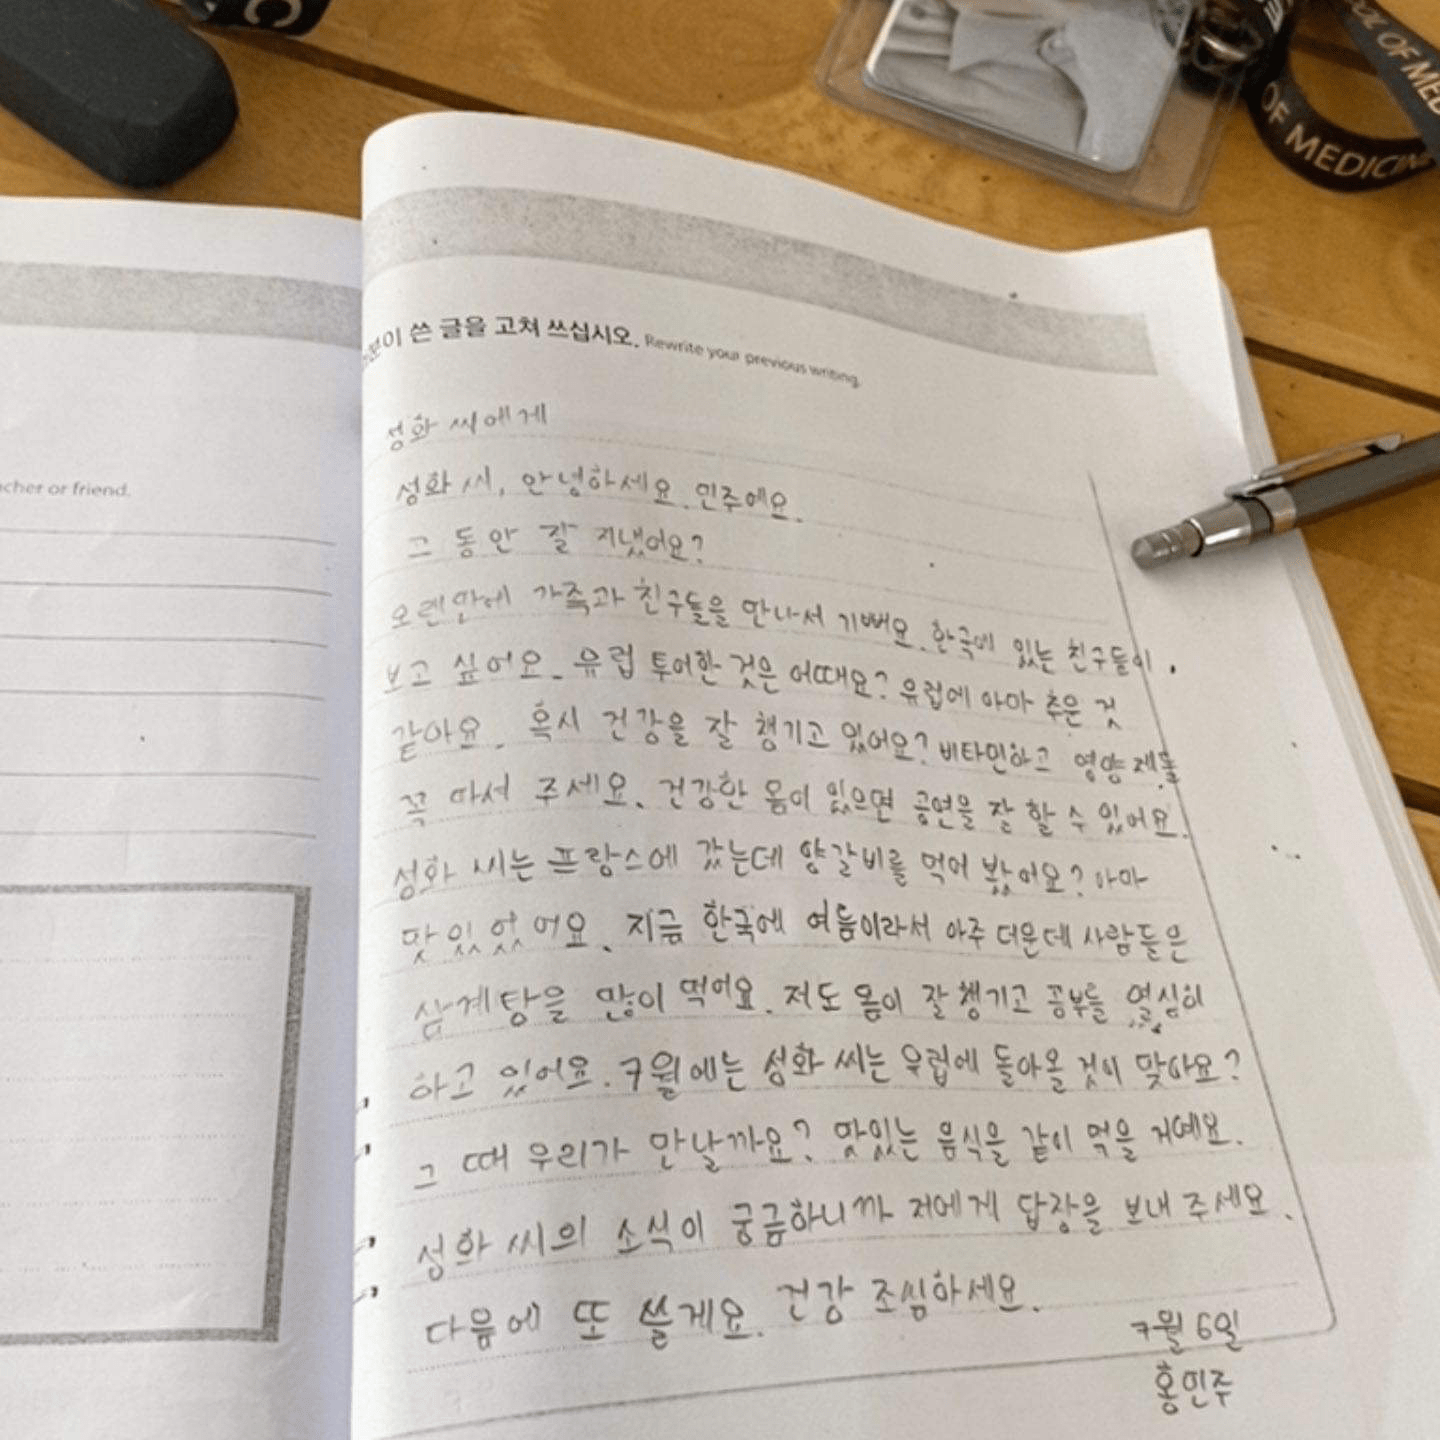 C
OF MEDICIN
OL OF MED
이 쓴 글을 고쳐 쓰십시오. Rewrite your previous writing.
cher or friend.
성화 씨에게
성화 씨, 안녕하세요. 민주에요.
그 동안 잘 지냈어요?
오랜만에 가족과 친구들을 만나서 기뻐요. 한국에 있는 친구들이
보고 싶어요. 유럽 투어한 것은 어때요? 유럽에 아마 추운 것
같아요. 혹시 건강을 잘 챙기고 있어요? 비타민하고 영양제를
꼭 마셔 주세요. 건강한 몸이 있으면 공연을 잘 할 수 있어요.
성화 씨는 프랑스에 갔는데 양갈비를 먹어 봤어요? 아마
맛있었어요. 지금 한국에 여름이라서 아주 더운데 사람들은
삼계탕을 많이 먹어요. 저도 몸이 잘 챙기고 공부를 열심히
하고 있어요. 7월에는 성화 씨는 유럽에 돌아올 것이 맞아요?
그 때 우리가 만날까요? 맛있는 음식을 같이 먹을 거예요.
성화 씨의 소식이 궁금하니까 저에게 답장을 보내 주세요.
다음에 또 쓸게요. 건강 조심하세요.
7월 6일
홍민주